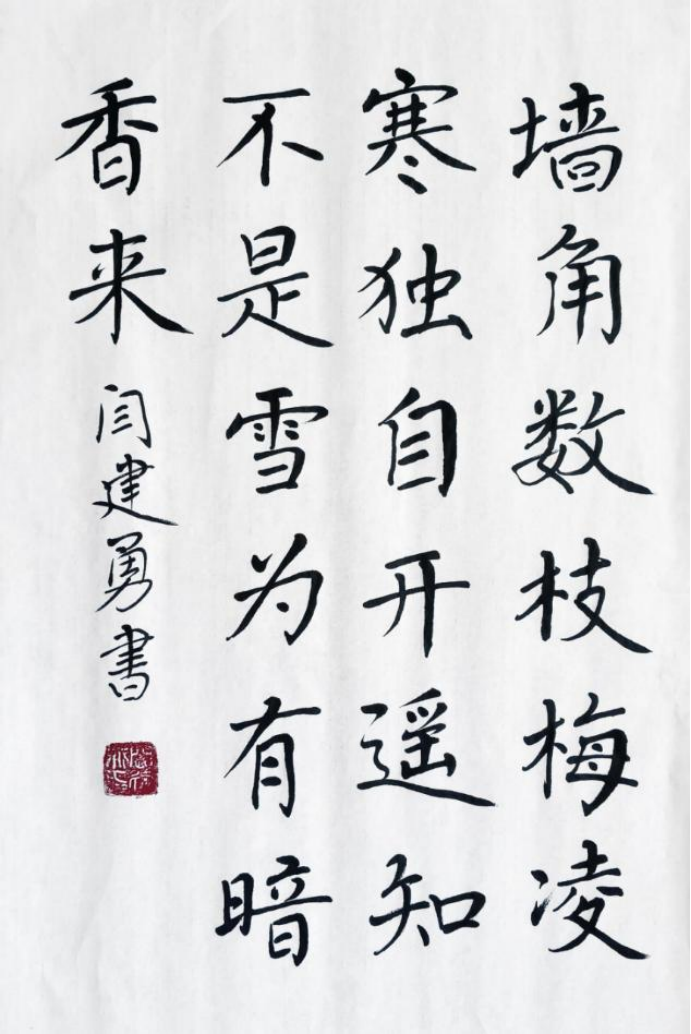 墙角数枝梅凌
寒独自开遥知
不是雪为有暗
香来
闫建勇書